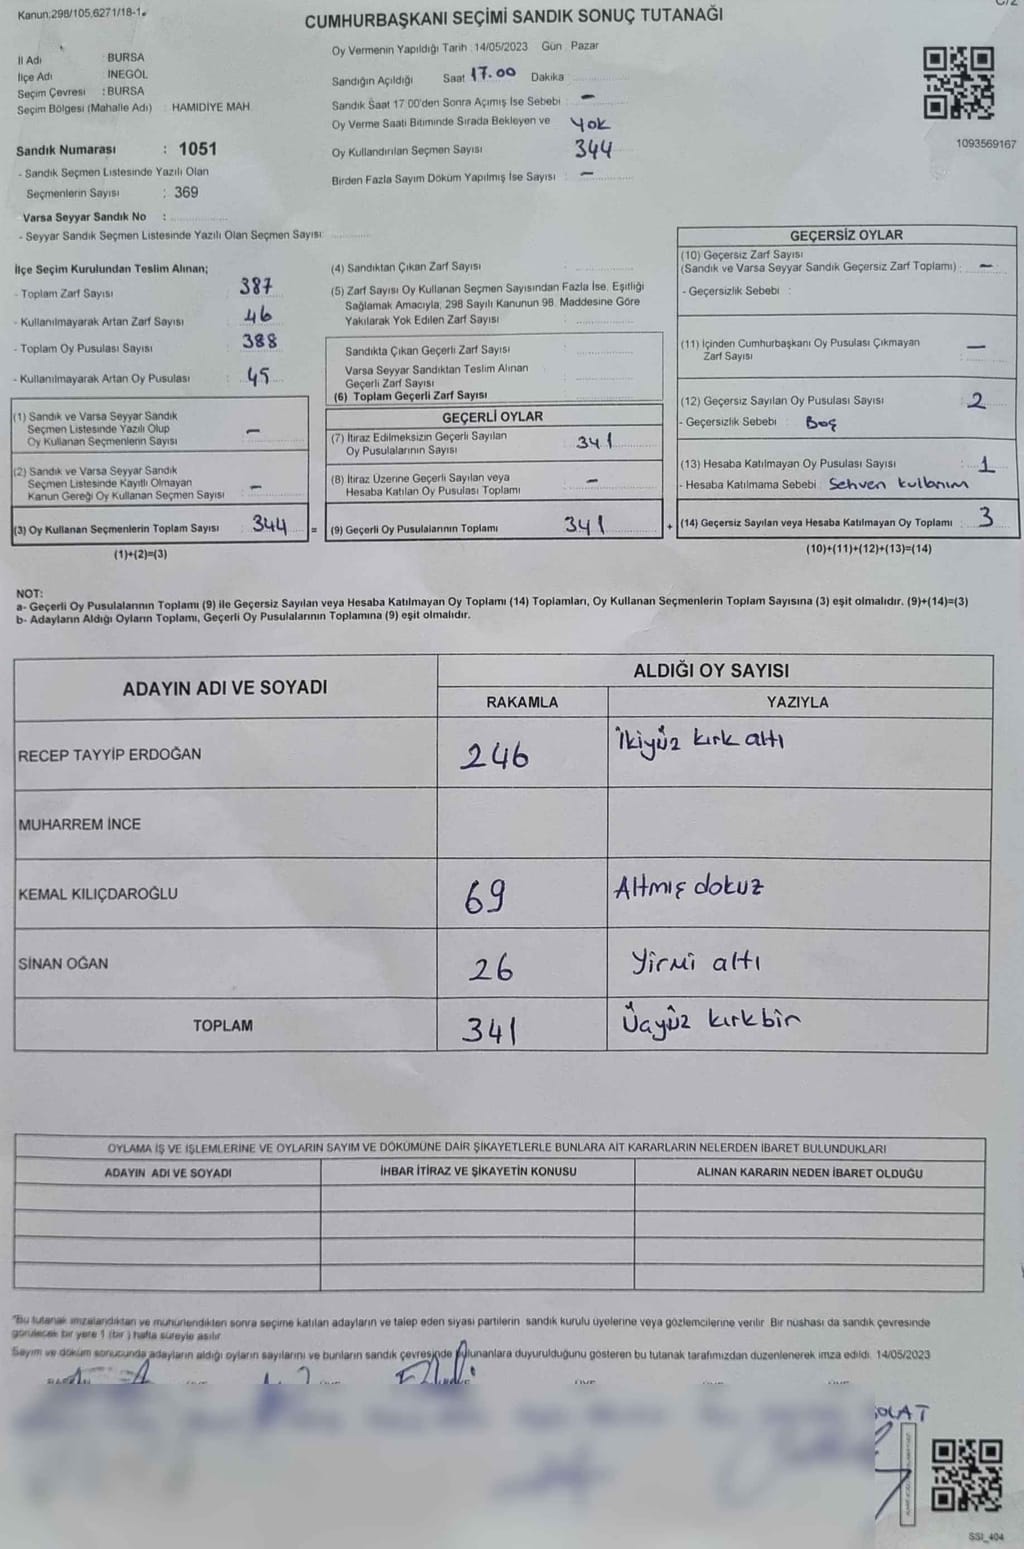 Kanun;298/105,6271/18-1.
C/2
CUMHURBAŞKANI SEÇİMİ SANDIK SONUÇ TUTANAĞI
İl Adı : BURSA
İlçe Adı : İNEGÖL
Seçim Çevresi : BURSA
Seçim Bölgesi (Mahalle Adı) : HAMIDİYE MAH.
Sandık Numarası : 1051
- Sandık Seçmen Listesinde Yazılı Olan
Seçmenlerin Sayısı : 369
Varsa Seyyar Sandık No :
- Seyyar Sandık Seçmen Listesinde Yazılı Olan Seçmen Sayısı:
Oy Vermenin Yapıldığı Tarih : 14/05/2023 Gün : Pazar
Sandığın Açıldığı Saat 17.00 Dakika
Sandık Saat 17:00'den Sonra Açımış İse Sebebi : -
Oy Verme Saati Bitiminde Sırada Bekleyen ve Yok
Oy Kullandırılan Seçmen Sayısı 344
Birden Fazla Sayım Döküm Yapılmış İse Sayısı : -
1093569167
İlçe Seçim Kurulundan Teslim Alınan;
- Toplam Zarf Sayısı : 387
- Kullanılmayarak Artan Zarf Sayısı : 46
- Toplam Oy Pusulası Sayısı : 388
- Kullanılmayarak Artan Oy Pusulası : 45
(1) Sandık ve Varsa Seyyar Sandık
Seçmen Listesinde Yazılı Olup
Oy Kullanan Seçmenlerin Sayısı : -
(2) Sandık ve Varsa Seyyar Sandık
Seçmen Listesinde Kayıtlı Olmayan
Kanun Gereği Oy Kullanan Seçmen Sayısı : -
(3) Oy Kullanan Seçmenlerin Toplam Sayısı : 344 =
(1)+(2)=(3)
(4) Sandıktan Çıkan Zarf Sayısı :
(5) Zarf Sayısı Oy Kullanan Seçmen Sayısından Fazla İse, Eşitliği
Sağlamak Amacıyla, 298 Sayılı Kanunun 98. Maddesine Göre
Yakılarak Yok Edilen Zarf Sayısı :
Sandıkta Çıkan Geçerli Zarf Sayısı :
Varsa Seyyar Sandıktan Teslim Alınan
Geçerli Zarf Sayısı :
(6) Toplam Geçerli Zarf Sayısı :
GEÇERLİ OYLAR
(7) İtiraz Edilmeksizin Geçerli Sayılan
Oy Pusulalarının Sayısı : 341
(8) İtiraz Üzerine Geçerli Sayılan veya
Hesaba Katılan Oy Pusulası Toplamı : -
(9) Geçerli Oy Pusulalarının Toplamı : 341 +
GEÇERSİZ OYLAR
(10) Geçersiz Zarf Sayısı
(Sandık ve Varsa Seyyar Sandık Geçersiz Zarf Toplamı) : -
- Geçersizlik Sebebi :
(11) İçinden Cumhurbaşkanı Oy Pusulası Çıkmayan
Zarf Sayısı : -
(12) Geçersiz Sayılan Oy Pusulası Sayısı : 2
- Geçersizlik Sebebi : Boş
(13) Hesaba Katılmayan Oy Pusulası Sayısı : 1
- Hesaba Katılmama Sebebi : Sehven kullanım
(14) Geçersiz Sayılan veya Hesaba Katılmayan Oy Toplamı : 3
(10)+(11)+(12)+(13)=(14)
NOT:
a- Geçerli Oy Pusulalarının Toplamı (9) ile Geçersiz Sayılan veya Hesaba Katılmayan Oy Toplamı (14) Toplamları, Oy Kullanan Seçmenlerin Toplam Sayısına (3) eşit olmalıdır. (9)+(14)=(3)
b- Adayların Aldığı Oyların Toplamı, Geçerli Oy Pusulalarının Toplamına (9) eşit olmalıdır.
ADAYIN ADI VE SOYADI ALDIĞI OY SAYISI
RAKAMLA YAZIYLA
RECEP TAYYİP ERDOĞAN 246 İkiyüz kırk altı
MUHARREM İNCE
KEMAL KILIÇDAROĞLU 69 Altmış dokuz
SİNAN OĞAN 26 Yirmi altı
TOPLAM 341 Üçyüz kırkbir
OYLAMA İŞ VE İŞLEMLERİNE VE OYLARIN SAYIM VE DÖKÜMÜNE DAİR ŞİKAYETLERLE BUNLARA AİT KARARLARIN NELERDEN İBARET BULUNDUKLARI
ADAYIN ADI VE SOYADI İHBAR İTİRAZ VE ŞİKAYETİN KONUSU ALINAN KARARIN NEDEN İBARET OLDUĞU
*Bu tutanak imzalandıktan ve mühürlendikten sonra seçime katılan adayların ve talep eden siyasi partilerin sandık kurulu üyelerine veya gözlemcilerine verilir. Bir nüshası da sandık çevresinde
görülecek bir yere 1 (bir) hafta süreyle asılır.
Sayım ve döküm sonucunda adayların aldığı oyların sayılarını ve bunların sandık çevresinde bulunanlara duyurulduğunu gösteren bu tutanak tarafımızdan düzenlenerek imza edildi. 14/05/2023
SSI_404